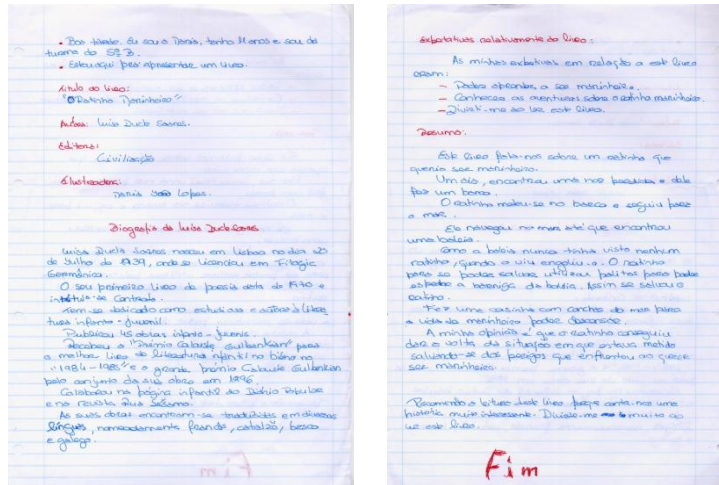 • Boa tarde. Eu sou o Denis, tenho 11 anos e sou da
turma do 5º B.
• Estou aqui para apresentar um livro.
Título do livro:
"O Ratinho Marinheiro"
Autora: Luísa Ducla Soares.
Editora:
Civilização
Ilustradora:
João Lopes.
Biografia de Luísa Ducla Soares
Luísa Ducla Soares nasceu em Lisboa no dia 20
de Julho de 1939, onde se licenciou em Filologia
Germânica.
O seu primeiro livro de poesia data de 1970 e
intitula-se Contrato.
Tem-se dedicado como estudiosa e autora à litera-
tura infanto-juvenil.
Publicou 45 obras infanto-juvenis.
Recebeu o "Prémio Calouste Gulbenkian" para
o melhor livro de literatura infantil no biénio
"1984-1985" e o grande Prémio Calouste Gulbenkian
pelo conjunto da sua obra em 1996
Colaborou na página infantil do Diário Popular
e na revista Rua Sésamo.
As suas obras encontram-se traduzidas em diversas
línguas, nomeadamente francês, catalão, basco
e galego.
Expectativas relativamente ao livro:
As minhas expectativas em relação a este livro
eram:
– Poder aprender a ser marinheiro.
– Conhecer as aventuras sobre o ratinho marinheiro.
– Divertir-me ao ler este livro.
Resumo:
Este livro fala-nos sobre um ratinho que
queria ser marinheiro.
Um dia, encontrou uma noz e dela
fez um barco.
O ratinho meteu-se no barco e seguiu para
o mar.
Ele navegou no mar até que encontrou
uma baleia.
Como a baleia nunca tinha visto nenhum
ratinho, quando o viu engoliu-o. O ratinho
para se poder salvar utilizou palitos para poder
a barriga da baleia. Assim se salvou o
ratinho.
Fez uma casinha com conchas do mar para
a vida de marinheiro poder descansar.
A minha opinião é que o ratinho conseguiu
dar a volta da situação em que estava metido
salvando-se dos perigos que enfrentou ao querer
ser marinheiro.
Recomendo a leitura deste livro porque conta-nos uma
história muito interessante. Diverti-me muito ao
ler este livro.
Fim